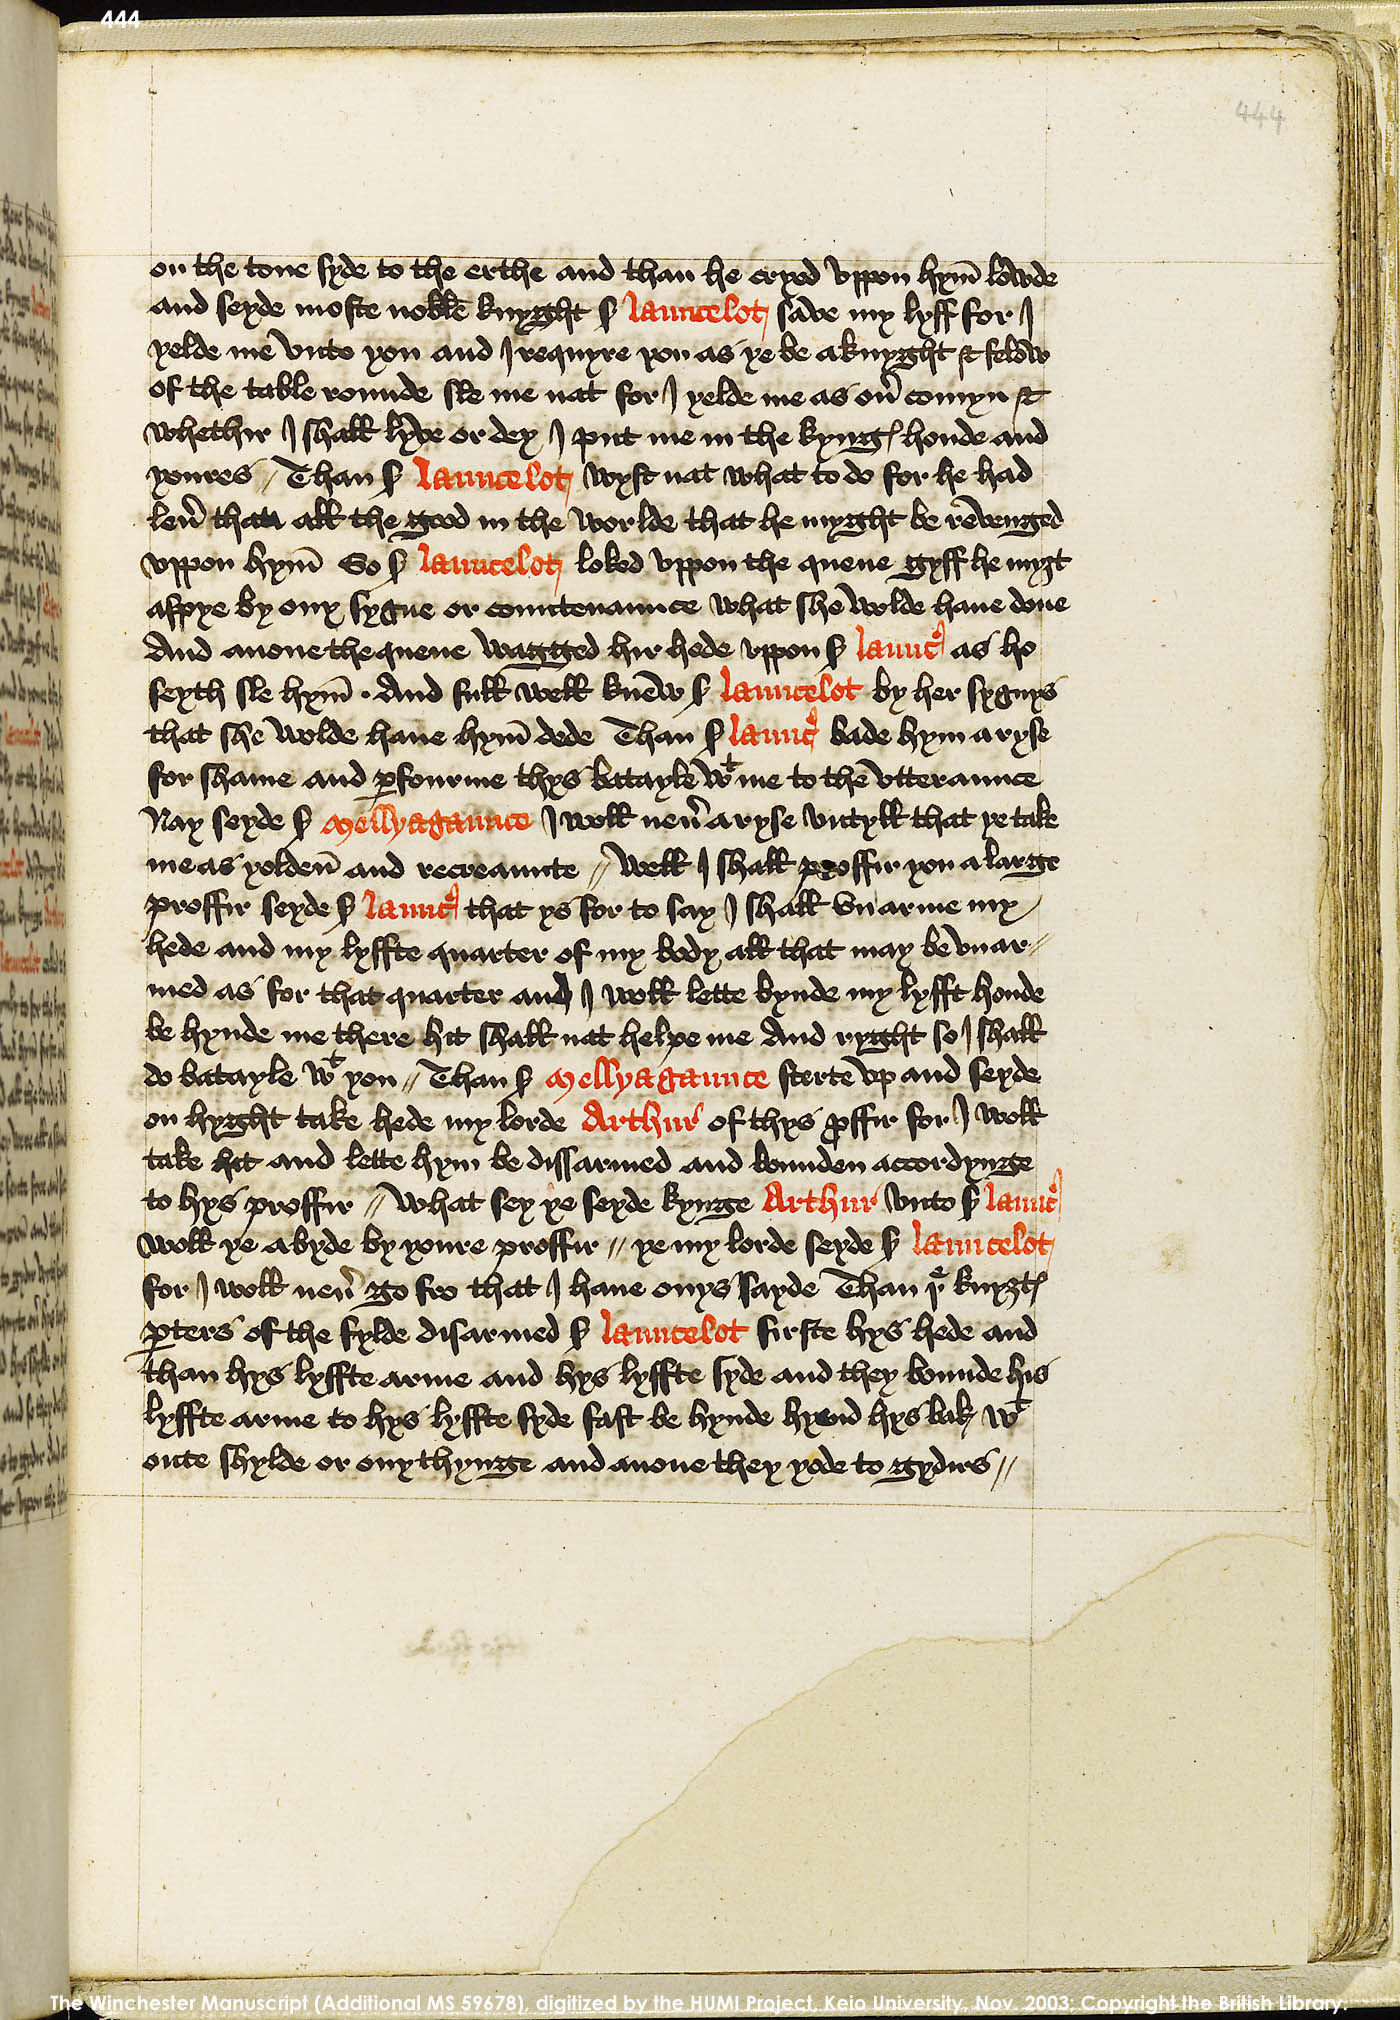 444
444
on the tone syde to the erthe and than he cryed vppon hym̄ lowde
and seyde moste noble knyght sʳ launcelot save my lyff for I
yelde me vnto you and I requyre you as ye be a knyght & felow
of the table rounde sle me nat for I yelde me as ou̅ comyn &
whethir I shall lyve or dey I put me in the kyngꝭ honde and
youres // Than sʳ launcelot wyst nat what to do for he had
leu̅ than all the good in the worlde that he myght be revenged
vppon hym̄ So sʳ launcelot loked vppon the quene gyff he myȝt
aspye by ony sygne or countenaunce what she wolde haue done
And anone the quene wagged hir hede vppon sʳ launc̉ as ho
seyth sle hym̄ · And full well knew sʳ launcelot by her sygnys
that she wolde haue hym̄ dede Than sʳ launc̉ bade hym aryse
for shame and ꝑfourme thys batayle wᵗ me to the vtteraunce
Nay seyde sʳ Mellyagaunce I woll neu̅ aryse vntyll that ye take
me as yolden̄ and recreaunte // Well I shall proffir you a large
proffir seyde sʳ launc̉ that ys for to say I shall vnarme my
hede and my lyffte quarter of my body all that may be vnar//
med as for that quarter and I woll lette bynde my lyfft honde
be hynde me there hit shall nat helpe me And ryght so I shall
do batayle wᵗ you // Than sʳ Mellyagaunce sterte vp and seyde
on hyght take hede my lorde Arthur of thys ꝓffir for I woll
take hit and lette hym be dissarmed and bounden accordynge
to hys proffir // What sey ye seyde kynge Arthur vnto sʳ launc̉
woll ye abyde by youre proffir // ye my lorde seyde sʳ launcelot
for I woll neu̅ go fro that I haue onys sayde Than þᵉ knyȝtꝭ
ꝑters of the fylde disarmed sʳ launcelot firste hys hede and
than hys lyffte arme and hys lyffte syde and they bounde his
lyffte arme to hys lyffte syde fast be hynde hys bak wᵗ
oute shylde or ony thynge and anone they yode to gydirs //
The Winchester Manuscript (Additional MS 59678), digitized by the HUMI Project, Keio University, Nov. 2003; Copyright the British Library.